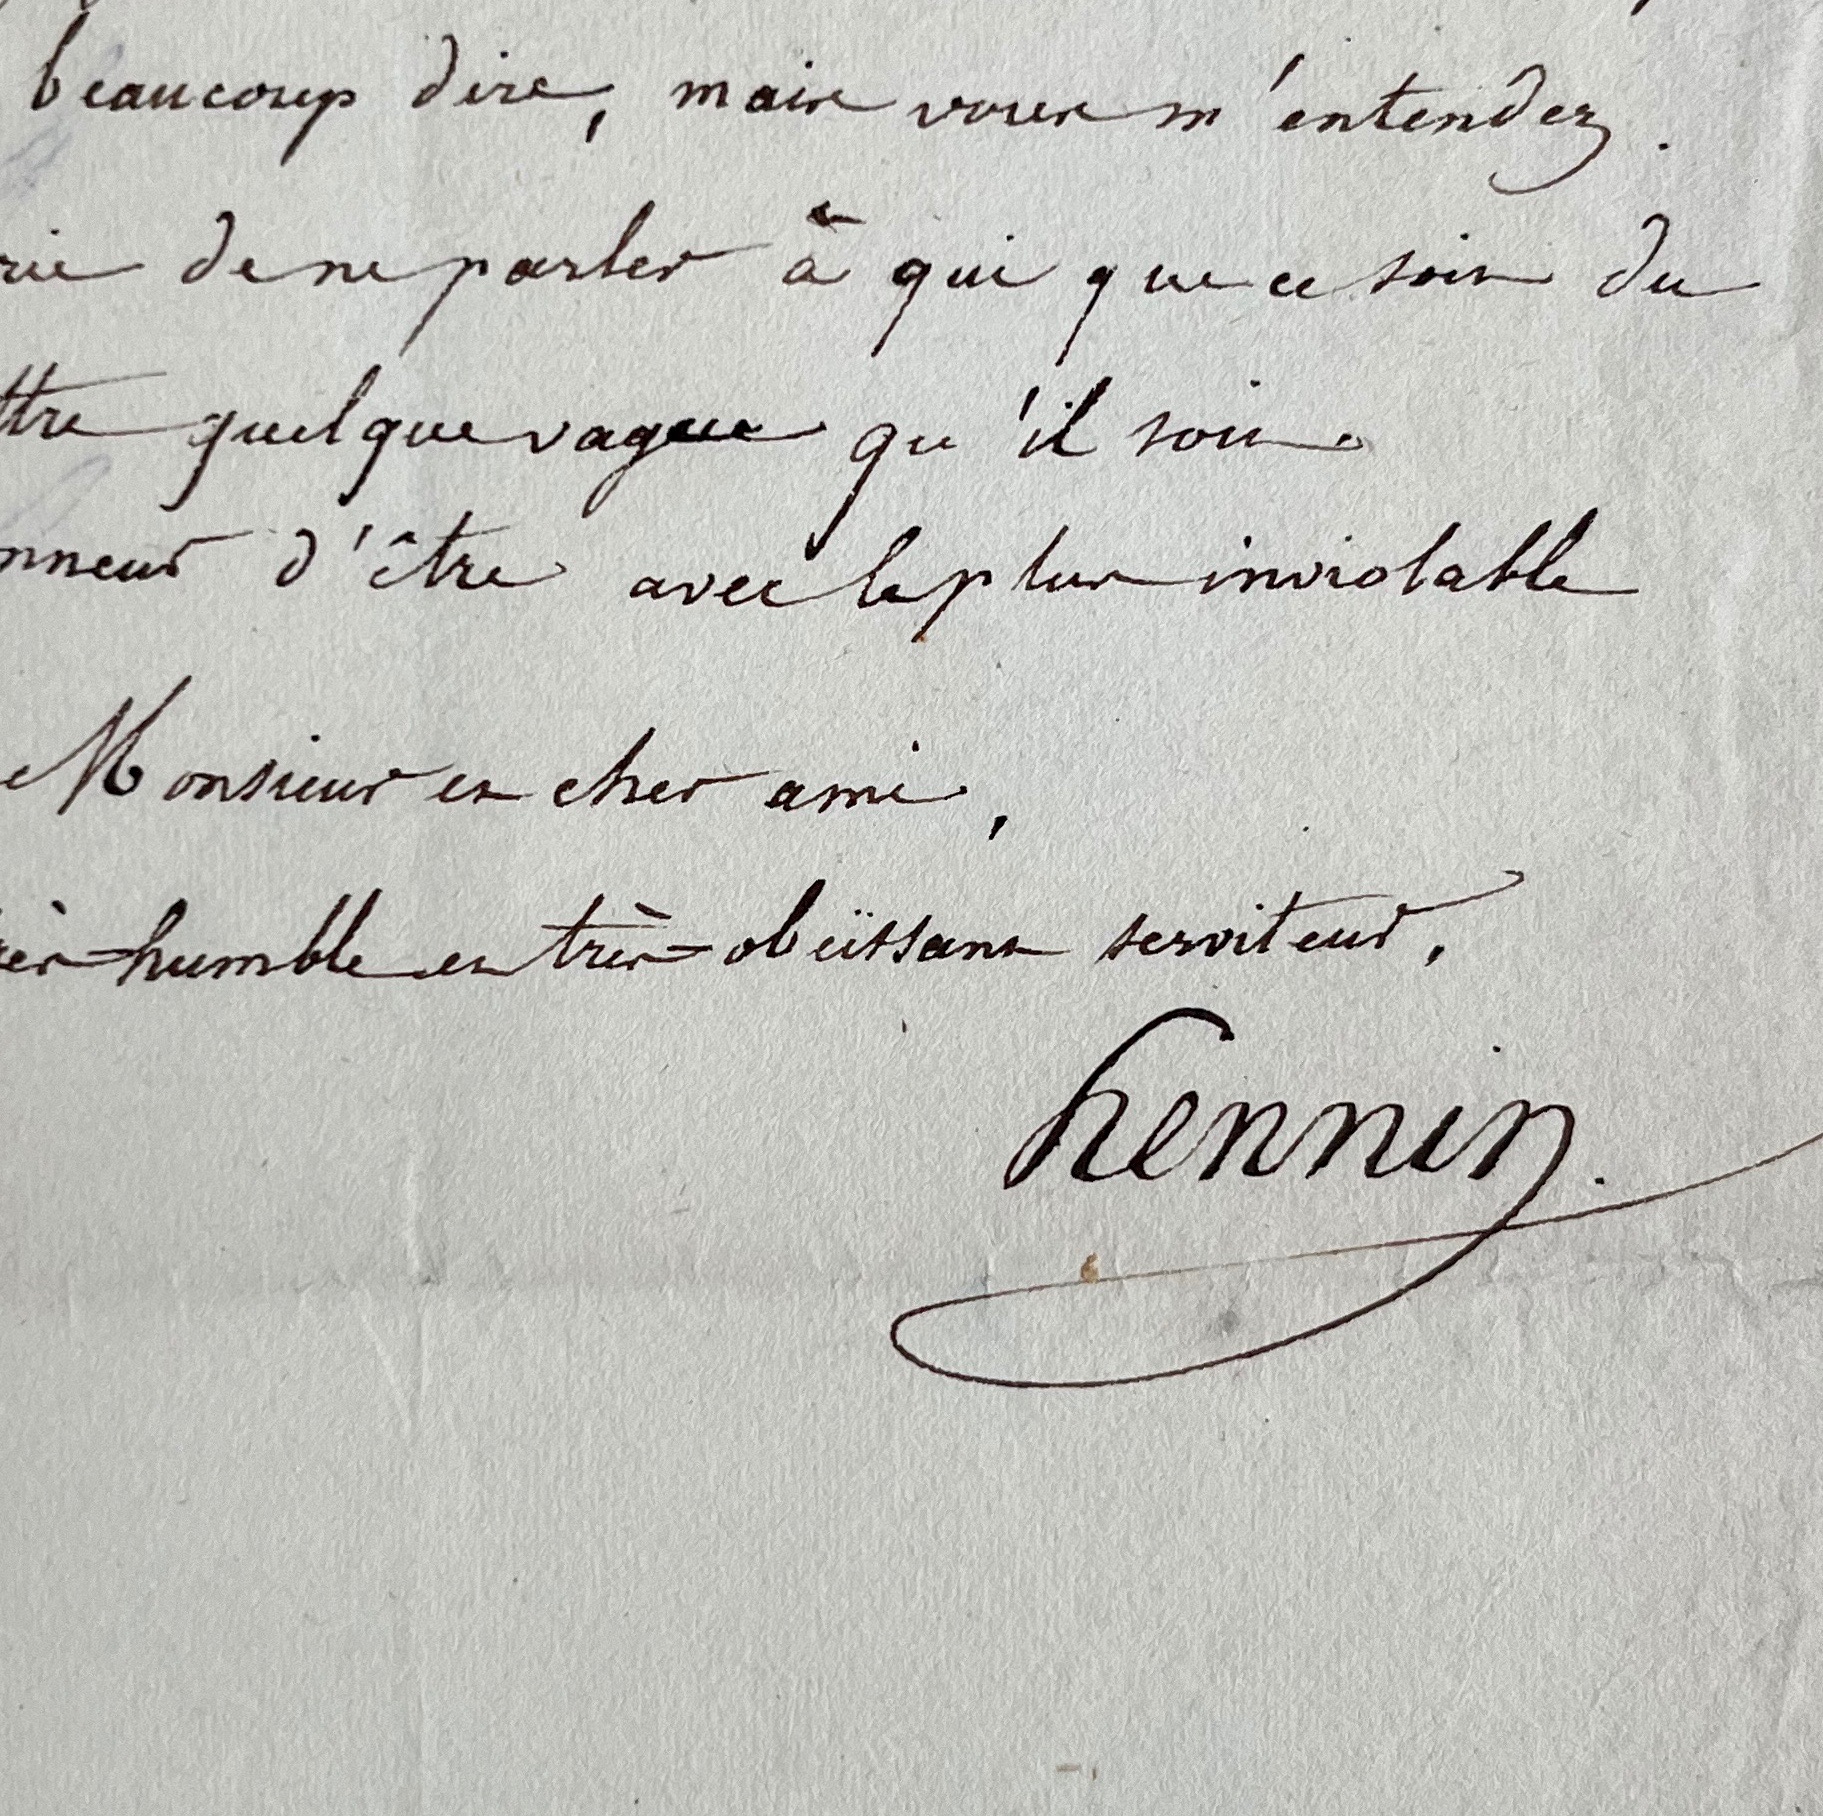 beaucoup dire, mais vous m'entendez.
rie de ne parler à qui que ce soit du
ttre quelque vague qu'il soit.
nneur d'être avec le plus inviolable
Monsieur et cher ami,
rès-humble et très-obéïssant serviteur,
hennin.